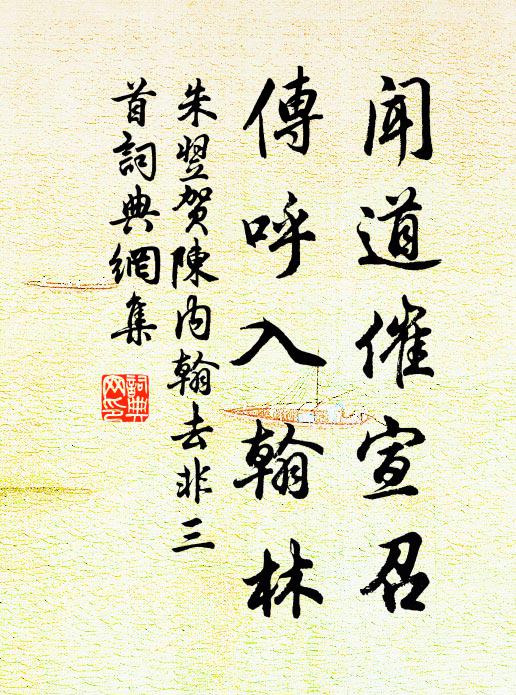 聞道催宣召
傳呼入翰林
朱翌賀陳内翰去非三
首詞典網集
詞典
網印